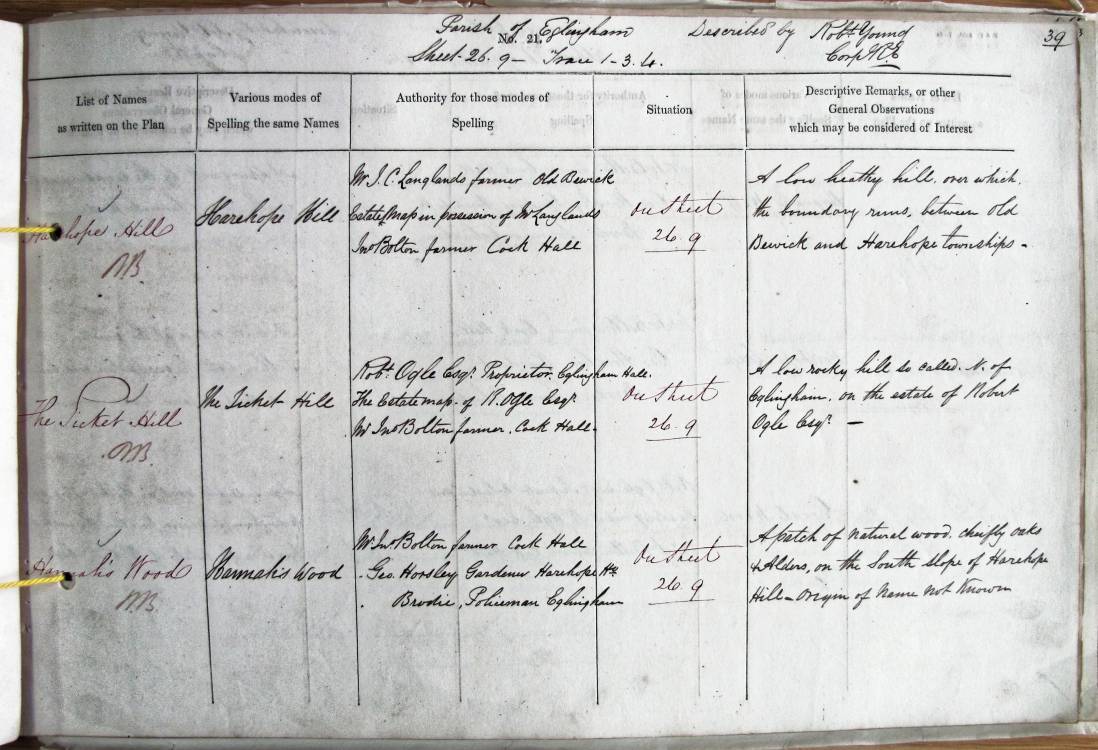 Parish of Eglingham
No. 21.
Sheet 26. 9 — Trace 1-3.4.
Described by Robt Young
Corpl R.E
39
List of Names
as written on the Plan
Various modes of
Spelling the same Names
Authority for those modes of
Spelling
Situation
Descriptive Remarks, or other
General Observations
which may be considered of Interest
Harehope Hill
Harehope Hill
Mr J. C. Langlands farmer Old Bewick
Estate Map in possession of Mr Langlands
Jno Bolton farmer Cock Hall
On Sheet
26. 9
A low heathy hill. over which.
the boundary runs, between Old
Bewick and Harehope townships -
The Picket Hill
The Picket Hill
Robt Ogle Esqr. Proprietor. Eglingham Hall.
The Estate map. of R. Ogle Esqr
Mr Jno Bolton farmer. Cock Hall.
On Sheet
26. 9
A low rocky hill so called. N. of
Eglingham. on the estate of Robert
Ogle Esqr. —
Hannah's Wood
Hannah's Wood
Mr Jno Bolton farmer Cock Hall
Geo. Horsley Gardener Harehope
Brodie, Policeman Eglingham
On Sheet
26. 9
A patch of natural wood. cheifly oaks
& Alders, on the South slope of Harehope
Hill - Origin of Name not Known